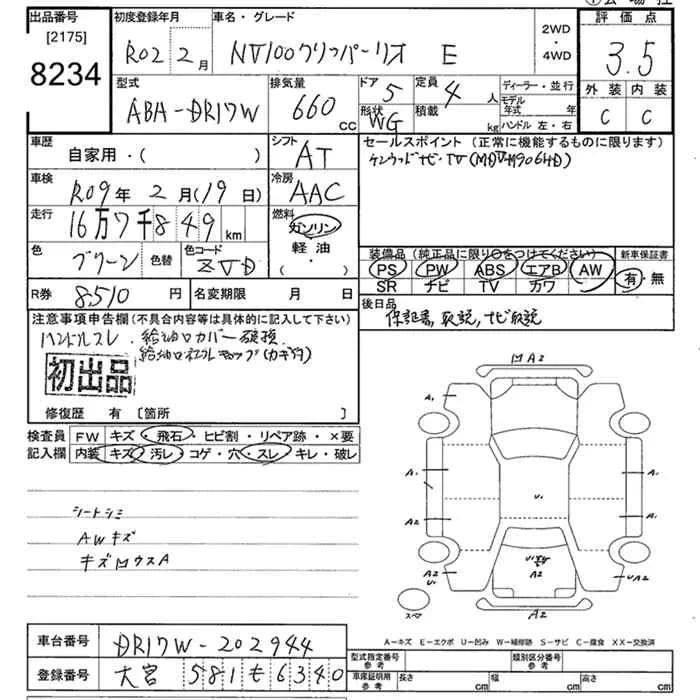 出品番号
[2175]
8234
初度登録年月
R02 2月
車名・グレード
NV100クリッパーリオ E
2WD
・
4WD
評価点
3.5
外装 内装
C C
型式
ABA-DR17W
排気量
660 cc
ドア 5
形状 WG
定員 4 人
積載 kg
ディーラー・並行
モデル年式 年
ハンドル 左・右
車歴
自家用・( )
シフト AT
車検
R09年 2月(19日)
冷房 AAC
走行
16万7千849km
燃料
ガソリン
軽油
・( )
色
グリーン
色替
色コード
ZVD
R券 8,510 円
名変期限 月 日
セールスポイント(正常に機能するものに限ります)
ケンウッドナビ・TV(MDV-M906HD)
装備品(純正品に限り○をつけてください)
PS PW ABS エアB AW
SR ナビ TV カワ
新車保証書
有・無
後日品
保証書, 取説, ナビ取説
注意事項申告欄(不具合内容等は具体的に記入して下さい)
ハンドルスレ.給油口カバー破損
初出品
修復歴 有[箇所 ]
検査員記入欄
FW キズ・飛石・ヒビ割・リペア跡・×要
内装 キズ・汚レ・コゲ・穴・スレ・キレ・破レ
シートシミ
AWキズ
キズMウスA
MA2
A1
A1
A1
A2
A1
U1
A2
U1
A2
A2
A2
スペア
A2
A-キズ E-エクボ U-凹み W-補修跡 S-サビ C-腐食 XX-交換済
車台番号 DR17W-202944
登録番号 大宮 581 も 6340
型式指定番号 参考
類別区分番号 参考
車庫証明用 参考
長さ cm 幅 cm 高さ cm